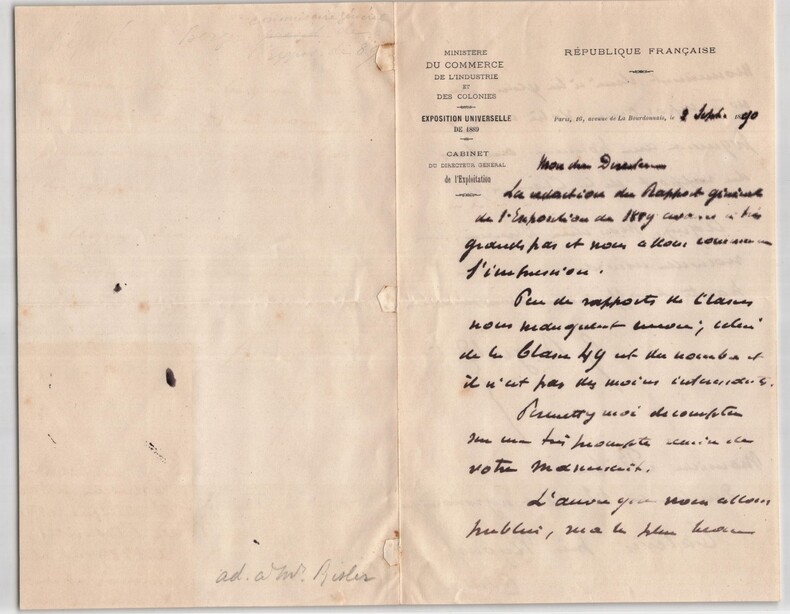 MINISTÈRE
DU COMMERCE
DE L'INDUSTRIE
ET
DES COLONIES
EXPOSITION UNIVERSELLE
DE 1889
CABINET
DU DIRECTEUR GÉNÉRAL
de l'Exploitation
RÉPUBLIQUE FRANÇAISE
Paris, 16, avenue de La Bourdonnais, le 2 Septbre 1890
Mon cher Directeur
La rédaction du Rapport général
de l'Exposition de 1889 avance à très
grands pas et nous allons commencer
l'impression.
Peu de rapports de Classes
nous manquent encore; celui
de la Classe 49 est du nombre et
il n'est pas des moins intéressants.
Permettez moi de compter
sur une très prompte envoi de
votre manuscrit.
L'œuvre que nous allons
publier, sera le plus beau
ad. à Mr. Risler